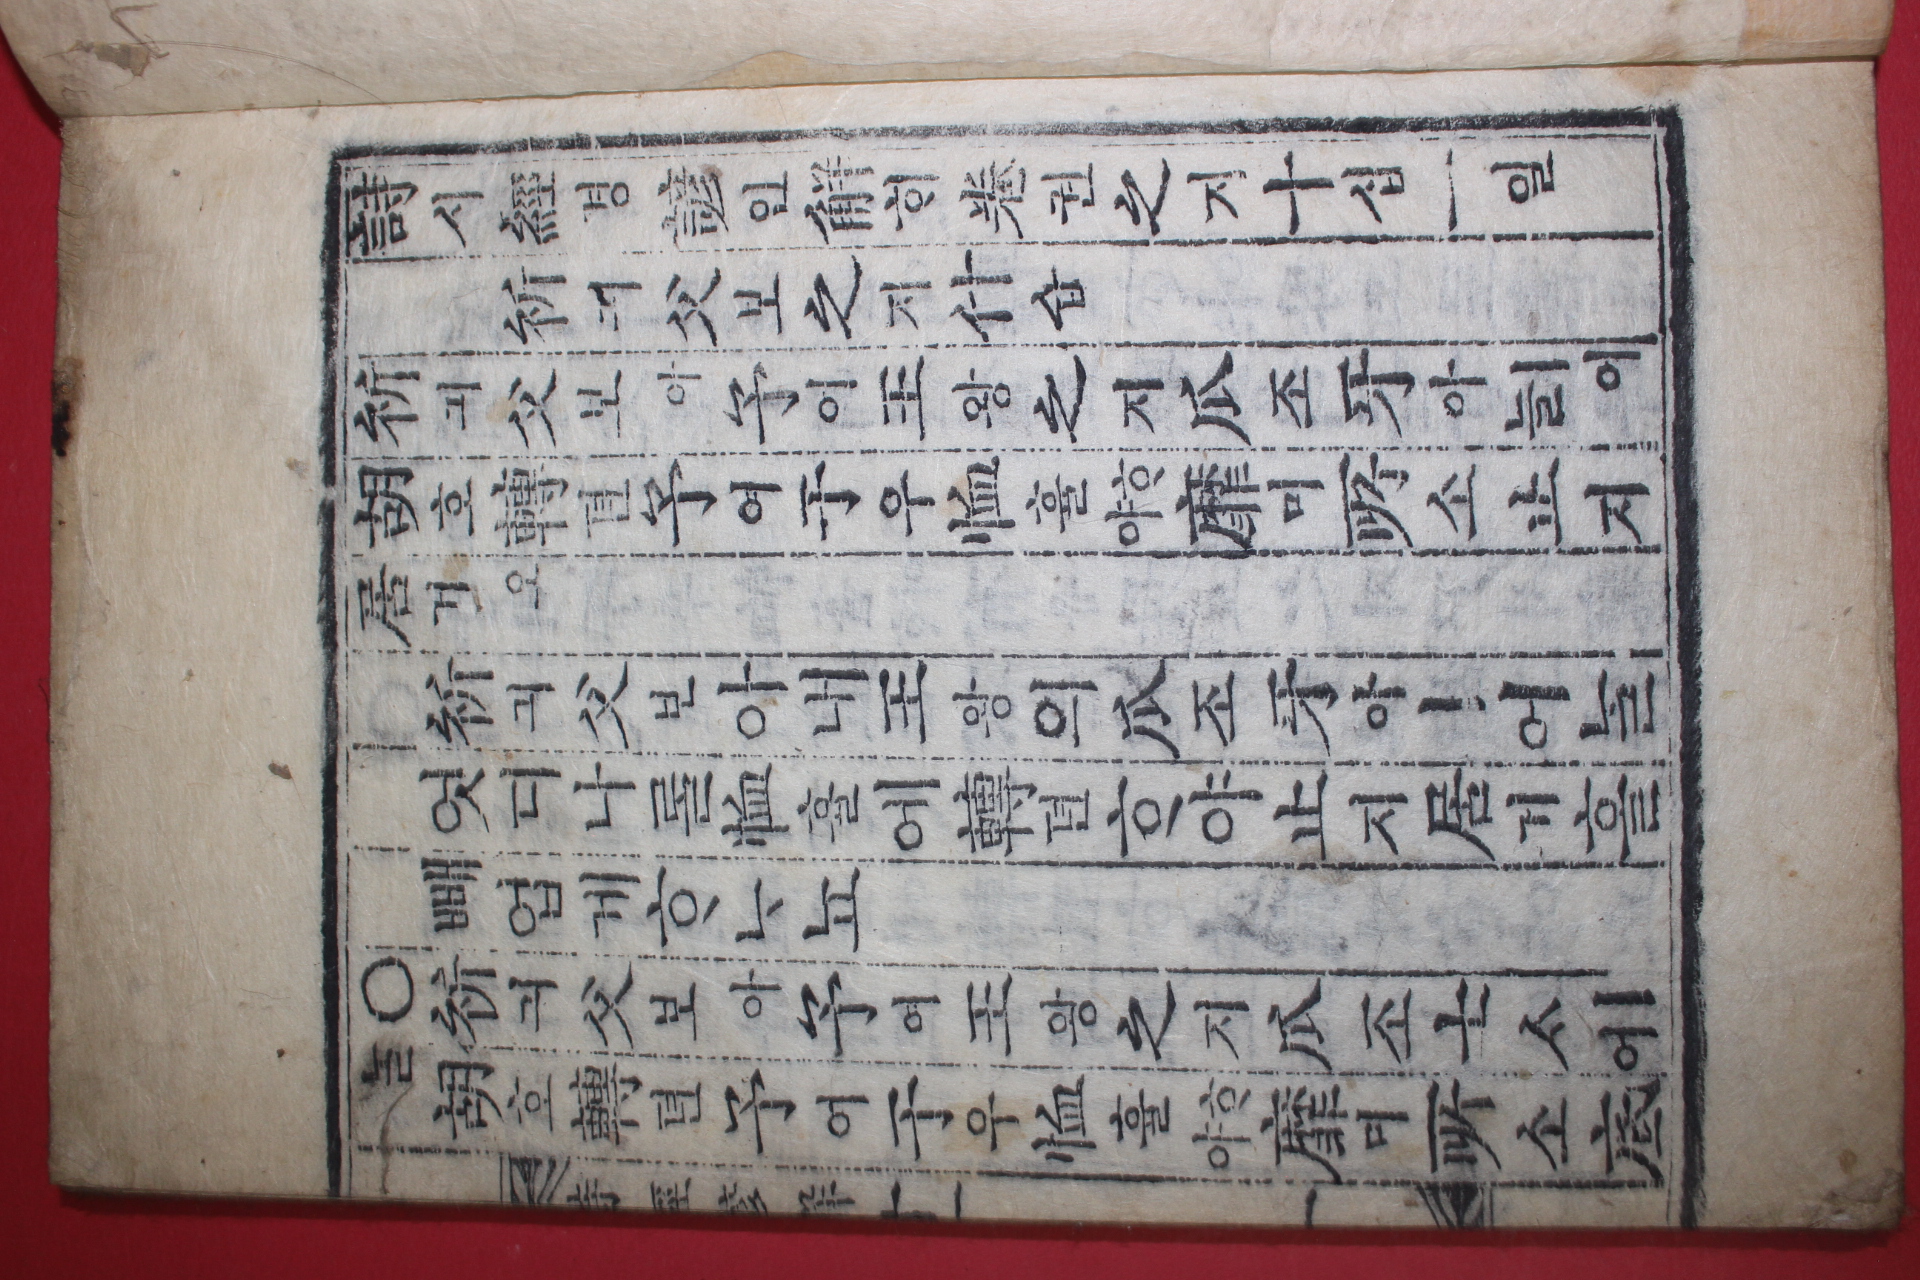 詩시經경諺언解ᄒᆡ卷권之지十십一일
祈긔父보之지什습
祈긔父보아予여王왕之지爪조牙아ㅣ어늘
胡호轉뎐予여于우恤휼ᄒᆞ야靡미所소止지
居거오
祈긔父보아내王왕의爪조牙아ㅣ어늘
엇디나ᄅᆞᆯ恤휼에轉뎐ᄒᆞ야止지居거ᄒᆞᆯ
빼업게ᄒᆞᄂᆞ뇨
○祈긔父보아予여王왕之지爪조士ᄉᆞㅣ어
늘胡호轉뎐予여于우恤휼ᄒᆞ야靡미所소底